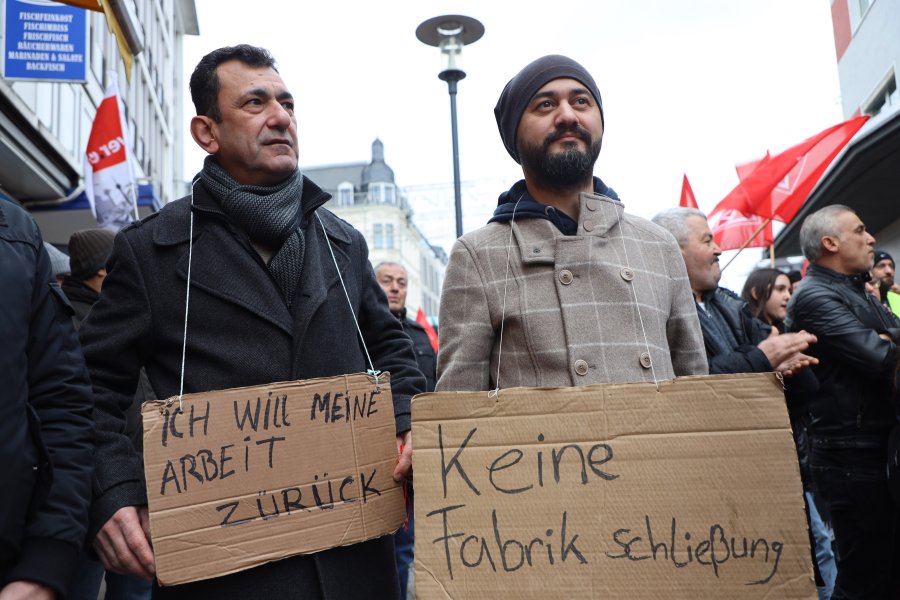 FISCHFEINKOST
FISCHIMBISS
FRISCHFISCH
RÄUCHERWAREN
MARINADEN & SALATE
BACKFISCH
ICH WILL MEINE
ARBEIT
ZÜRÜCK
Keine
Fabrik schließung